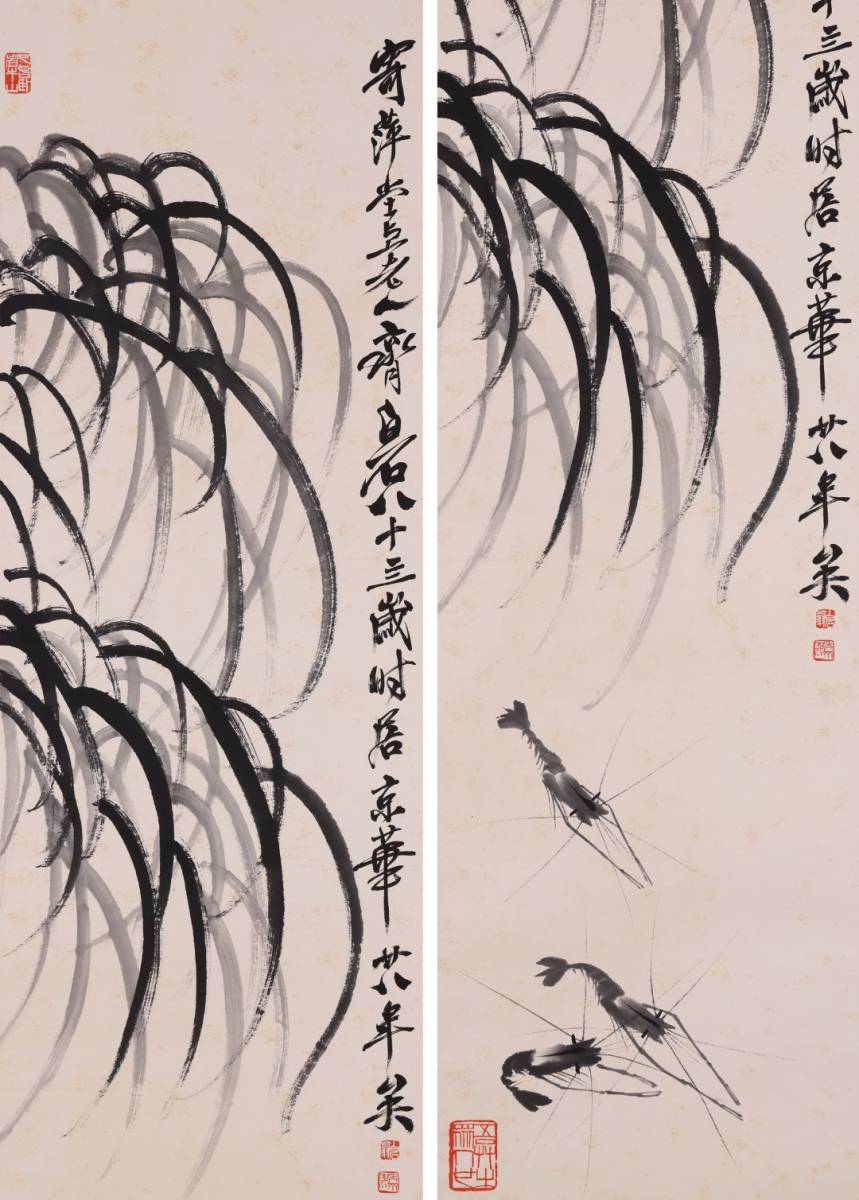 寄萍堂上老人齊白石八十三歲時居京華廿八年矣
十三歲時居京華廿八年矣